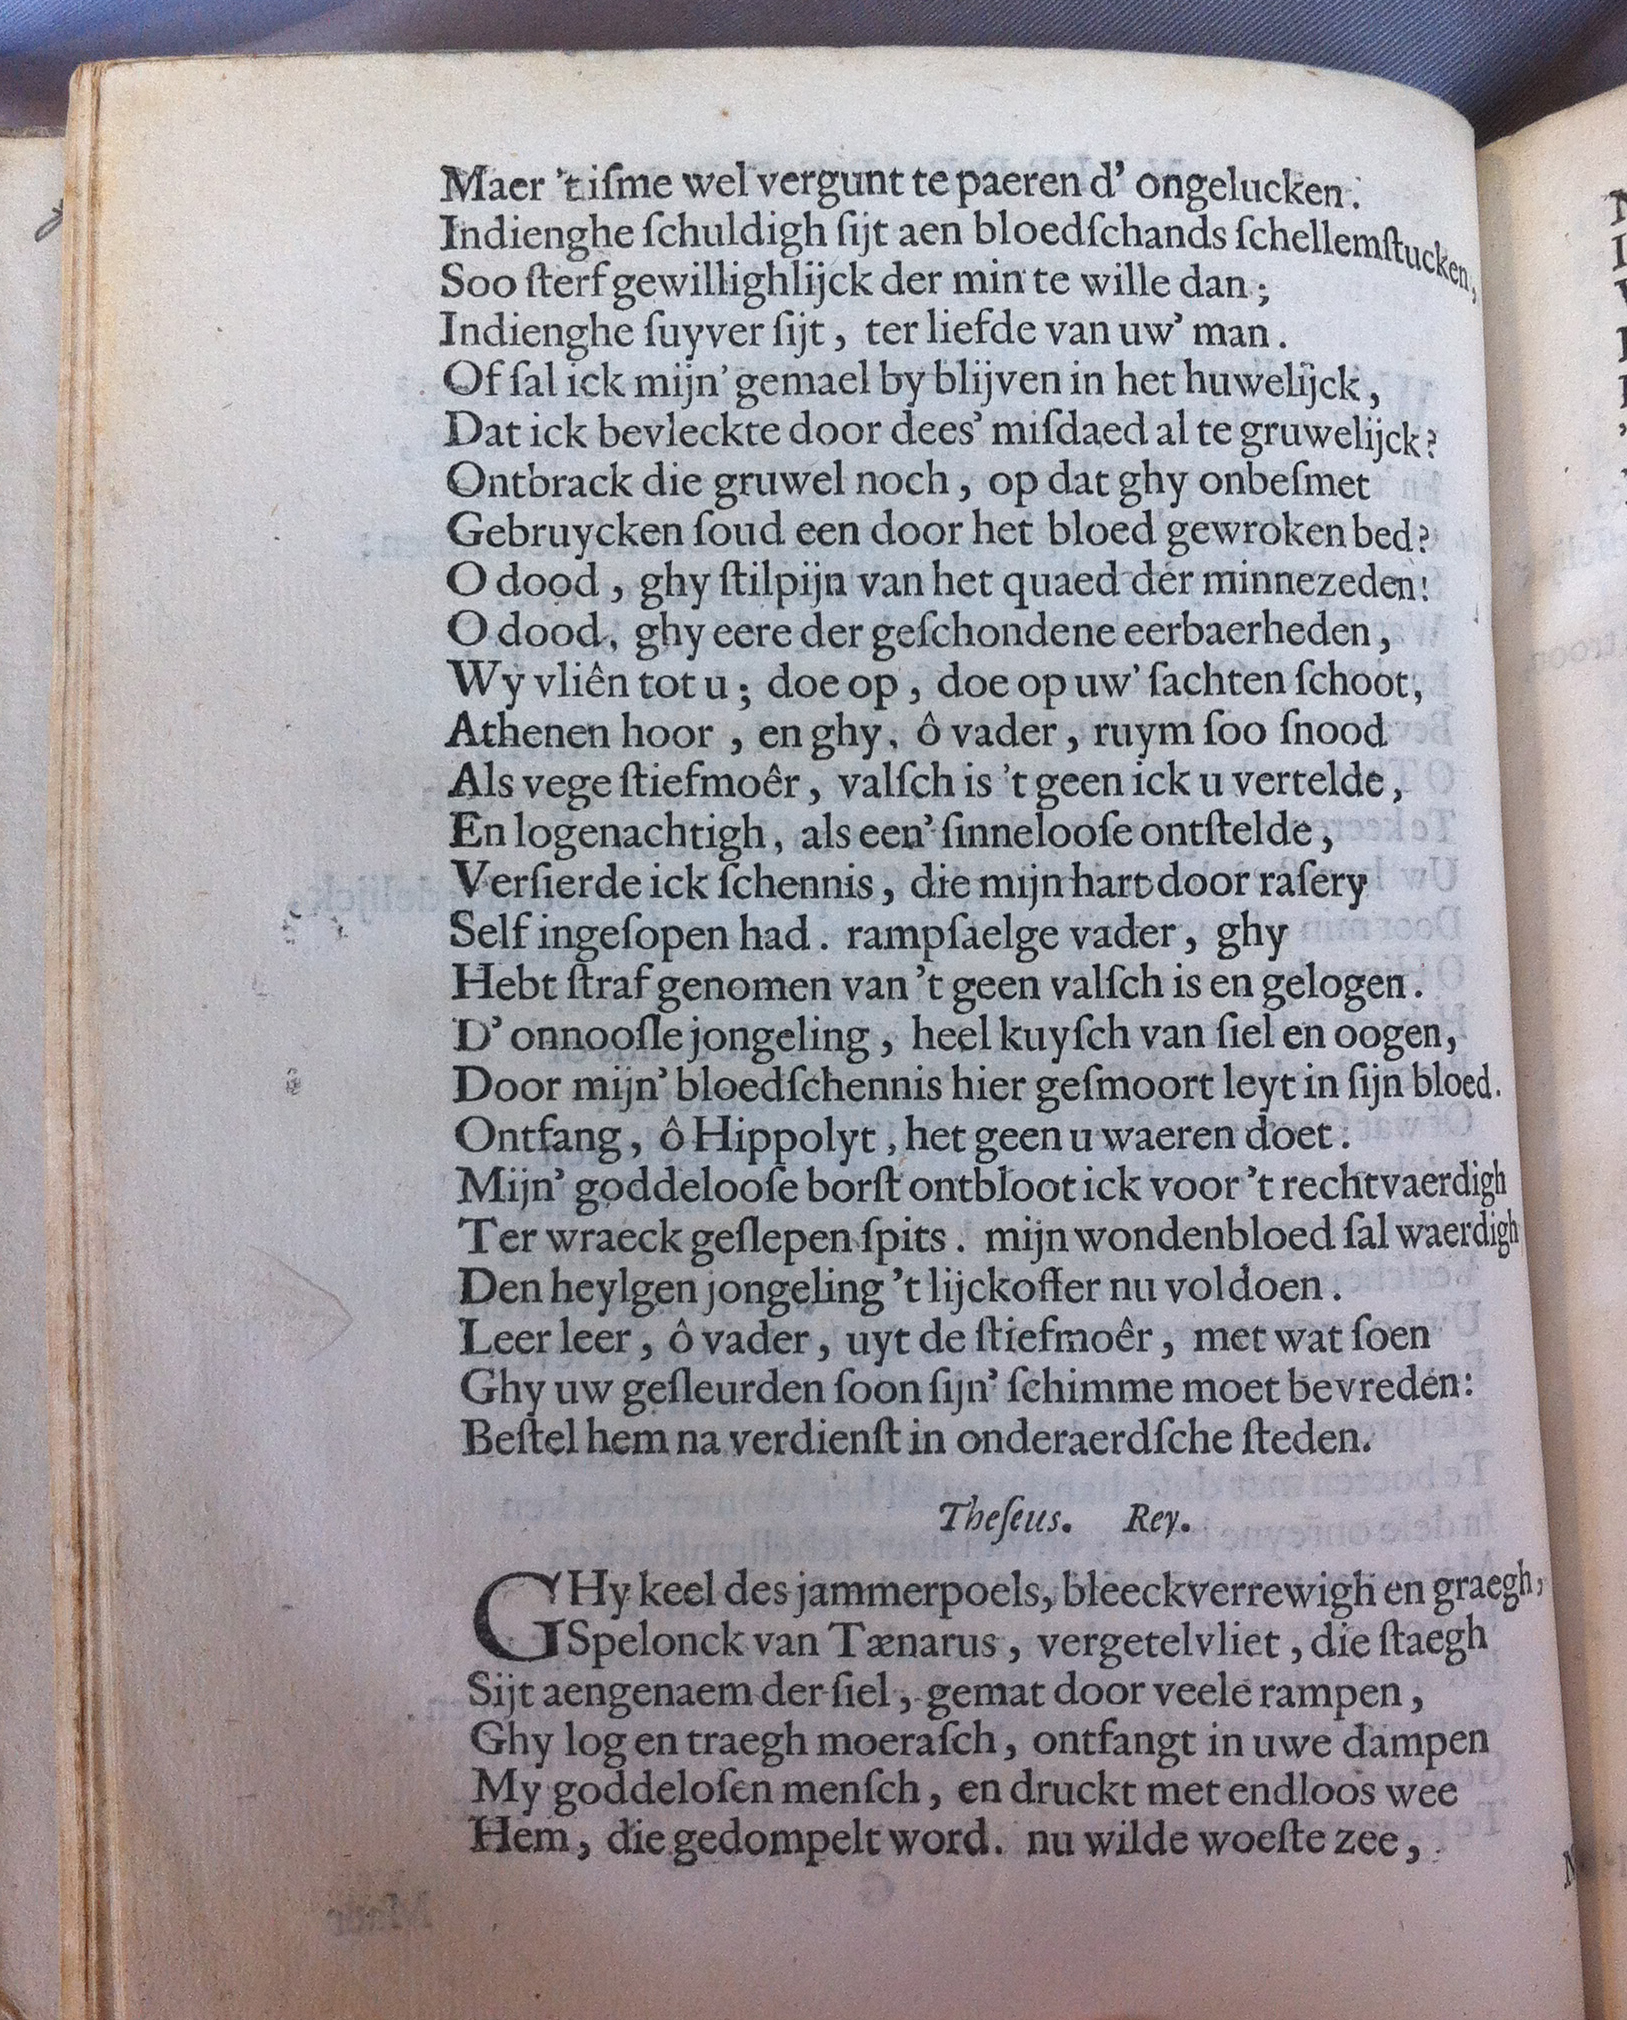 Maer 't iſme wel vergunt te paeren d' ongelucken.
Indienghe ſchuldigh ſijt aen bloedſchands ſchellemſtucken,
Soo ſterf gewillighlijck der min te wille dan;
Indienghe ſuyver ſijt, ter liefde van uw' man.
Of ſal ick mijn' gemael by blijven in het huwelijck,
Dat ick bevleckte door dees' miſdaed al te gruwelijck?
Ontbrack die gruwel noch, op dat ghy onbeſmet
Gebruycken ſoud een door het bloed gewroken bed?
O dood, ghy ſtilpijn van het quaed der minnezeden!
O dood, ghy eere der geſchondene eerbaerheden,
Wy vliên tot u; doe op, doe op uw' ſachten ſchoot,
Athenen hoor, en ghy, ô vader, ruym ſoo ſnood
Als vege ſtiefmoêr, valſch is 't geen ick u vertelde,
En logenachtigh, als een' ſinnelooſe ontſtelde,
Verſierde ick ſchennis, die mijn hart door raſery
Self ingeſopen had. rampſaelge vader, ghy
Hebt ſtraf genomen van 't geen valſch is en gelogen.
D' onnooſle jongeling, heel kuyſch van ſiel en oogen,
Door mijn' bloedſchennis hier geſmoort leyt in ſijn bloed.
Ontfang, ô Hippolyt, het geen u waeren doet.
Mijn' goddelooſe borſt ontbloot ick voor 't rechtvaerdigh
Ter wraeck geſlepen ſpits. mijn wondenbloed ſal waerdigh
Den heylgen jongeling 't lijckoffer nu voldoen.
Leer leer, ô vader, uyt de ſtiefmoêr, met wat ſoen
Ghy uw geſleurden ſoon ſijn' ſchimme moet bevreden:
Beſtel hem na verdienſt in onderaerdſche ſteden.
Theſeus. Rey.
GHy keel des jammerpoels, bleeckverrewigh en graegh,
Spelonck van Tænarus, vergetelvliet, die ſtaegh
Sijt aengenaem der ſiel, gemat door veele rampen,
Ghy log en traegh moeraſch, ontfangt in uwe dampen
My goddeloſen menſch, en druckt met endloos wee
Hem, die gedompelt word. nu wilde woeſte zee,